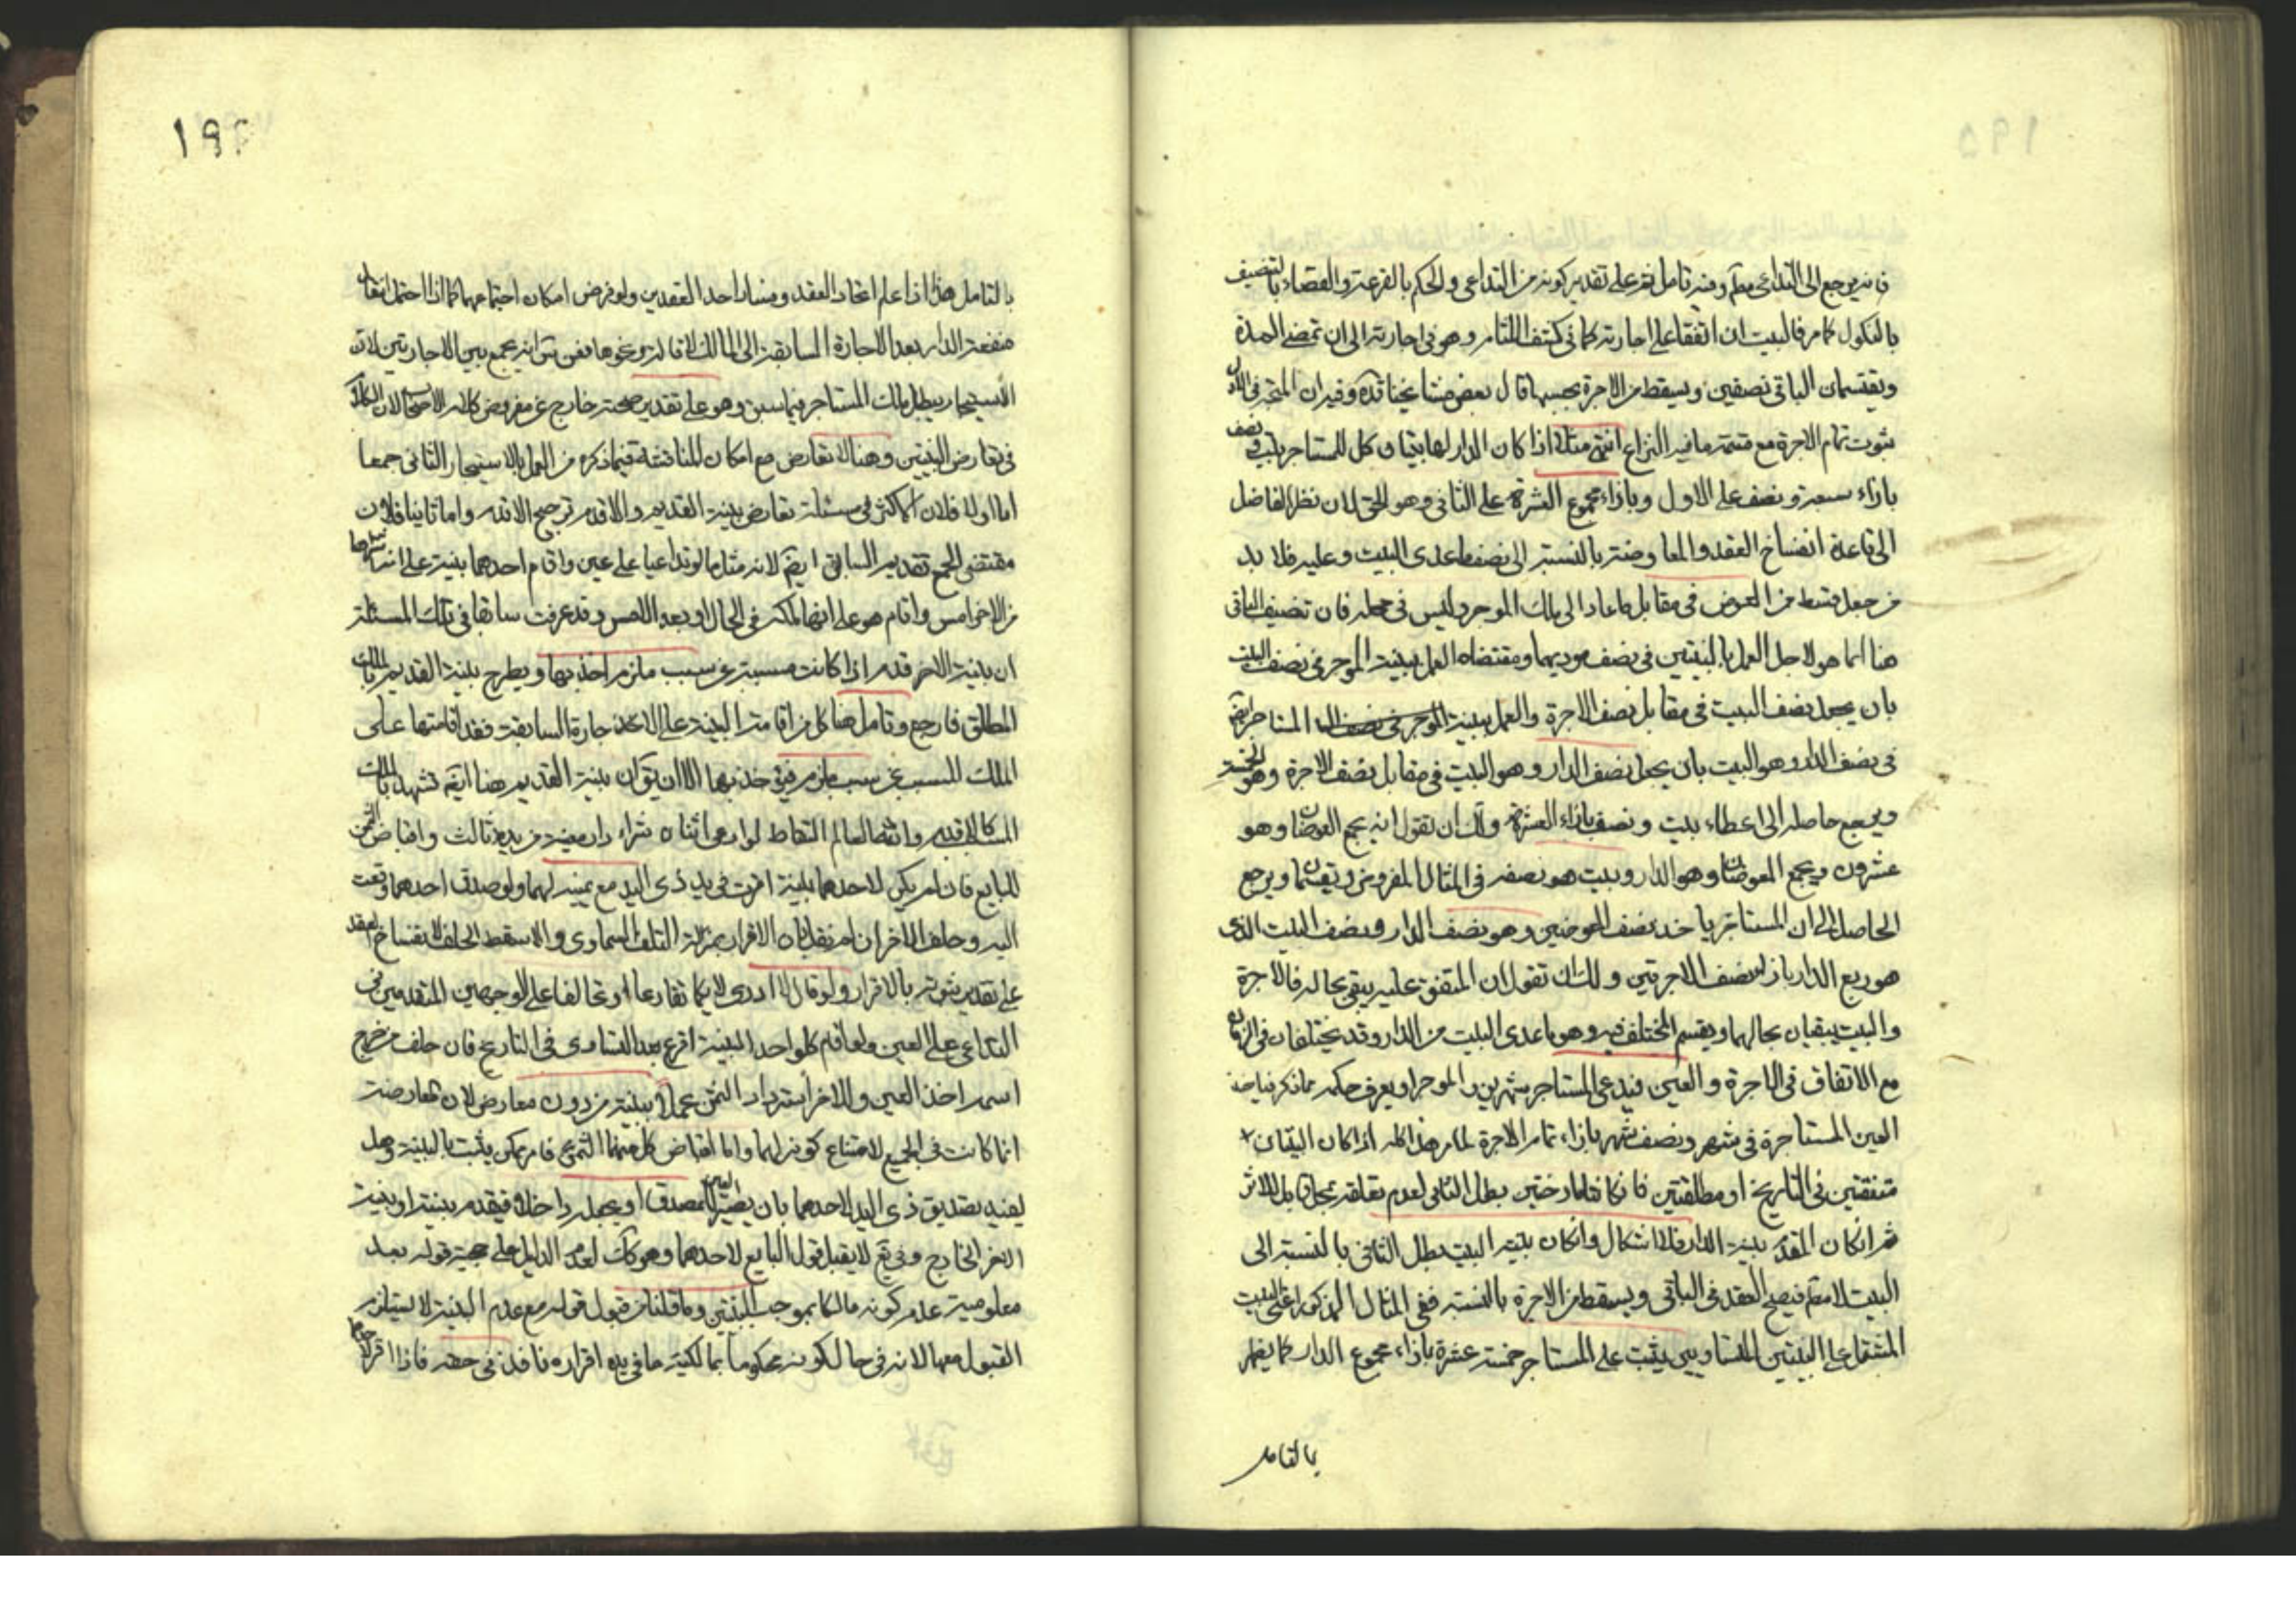 فانه يرجع الى التداعى مطم وفيه تامل ثم على تقدير كونه من التداعى والحكم بالقرعة والقضاء بالتنصيف
بالنكول كما مر فالبيت ان اتفقا على اجارته كما فى كشف اللثام وهو فى اجارته الى ان تمضى المدة
ويقتسمان الباقى نصفين ويسقط من الاجرة بحسبها قال بعض مشايخنا قده وفيه ان المتجه فى الاول
ثبوت تمام الاجرة مع قسمة ما فيه النزاع انتهى مثلا اذا كان الدار لها بيتان كل للمستاجر بيت ونصف
بازاء سبعة ونصف على الاول وبازاء مجموع العشرة على الثانى وهو الحق لان نظر الفاضل
الى قاعدة انفساخ العقد والمعاوضة بالنسبة الى نصف ما عدى البيت وعليه فلا بد
من جعل قسط من العوض فى مقابل ما عاد الى ملك الموجر وليس فى محله فان تنصيف الباقى
هنا انما هو لاجل العمل بالبينتين فى نصف موديهما ومقتضاه العمل ببينة الموجر فى نصف البيت
بان يجعل نصف البيت فى مقابل نصف الاجرة والعمل ببينة المستاجر ايضا
فى نصف الدار وهو البيت بان يجعل نصف الدار وهو البيت فى مقابل نصف الاجرة وهو الخمسة
ويرجع حاصله الى اعطاء بيت ونصف بازاء العشرة ولك ان تقول انه يجمع العوضان وهو
عشرون ويجمع المعوضان وهو الدار وبيت هو نصفه فى المثال المفروض ويقسم ويرجع
الحاصل الى ان المستاجر ياخذ نصف العوضين وهو نصف الدار ونصف البيت الذى
هو ربع الدار بازاء نصف الاجرتين ولك ان تقول ان المتفق عليه يبقى بحاله فالاجرة
والبيت يبقيان بحالهما ويقسم المختلف فيه وهو ما عدى البيت من الدار وقد يختلفان فى الزمان
مع الاتفاق فى الاجرة والعين فيدعى المستاجر شهرين والموجر ويعرف حكمه مما ذكرنا
العين المستاجرة فى شهر ونصف شهر بازاء تمام الاجرة لما مر هذا كله اذا كان البينتان
متفقتين فى التاريخ او مطلقتين فان كانتا مورختين بطل الثانى لعدم تعلقه بمحل قابل للاثر
ثم ان كان المقدم بينة الدار فلا اشكال وان كان بينة البيت بطل الثانى بالنسبة الى
البيت لا مطم فيصح العقد فى الباقى ويسقط من الاجرة بالنسبة ففى المثال المذكور اعنى البيت
المشتمل على البيتين المتساويين يثبت على المستاجر خمسة عشرة بازاء مجموع الدار كما يظهر
بالتامل
١٩٦
بالتامل هذا اذا علم اتحاد العقد وفساد احد العقدين ولو فرض امكان اجتماعهما كما اذا احتمل انتقال
منفعة الدار بعد الاجارة السابقة الى المالك لاقالة ونحوها فعن انه يجمع بين الاجارتين لان
الاستيجار يبطل ملك المستاجر فيما سبق وهو على تقدير صحته خارج عن مفروض كلام الاصحاب لان الكلام
فى تعارض البينتين وهنا لا تعارض مع امكان المناقشة فيما ذكره من العمل بالاستيجار الثانى جمعا
اما اولا فلان الاكثر فى مسئلة تعارض بينة القديم والاقدم ترجيح الاقدم واما ثانيا فلان
مقتضى الجمع تقديم السابق ايضا لانه مثل ما لو تداعيا على عين واقام احدهما بينة على انه اشتراها
من الاخر امس واقام هو على انها ملكه فى الحال او بعد الامس وقد عرفت سابقا فى تلك المسئلة
ان بينة الاخر قدم اذا كانت مسببة عن سبب ملزم اخذ بها ويطرح بينة القديم بالملك
المطلق فارجع وتامل هنا كل من اقامة البينة على الاجارة السابقة فقد اقامتها على
الملك المسبب عن سبب ملزم فيؤخذ بها الا ان يق ان بينة القديم هنا ايضا تشهد بالملك
كالاقدم والله العالم التقاط لو ادعى اثنان شراء دار معينة من يد ثالث واقباض الثمن
للبايع فان لم يكن لاحدهما بينة اقرت فى يد ذى اليد مع يمينه لهما ولو صدق احدهما دفعت
اليه وحلف للاخر ان لم نقل بان الاقرار بمنزلة التلف السماوى والا سقط الحلف لانفساخ العقد
على تقدير ثبوته بالاقرار ولو قال لا ادرى لايكما تقارعا او تحالفا على الوجهين المتقدمين فى
التداعى على العين ولو اقام كل واحد البينة اقرع بعد التساوى فى التاريخ فان حلف من خرج
اسمه اخذ العين وللاخر استرداد الثمن عملا ببينة من دون معارض لان المعارضة
انما كانت فى المبيع لامتناع كونه لهما واما اقباض كل منهما الثمن فامر ممكن يثبت بالبينة وهل
يفيد تصديق ذى اليد لاحدهما بان يصير اليد للمصدق او يجعله داخلا فيقدم بينته او بينة
الاخر الخارج وفى يع لا يقبل قول البايع لاحدهما وهو كك لعدم الدليل على حجية قوله بعد
معلومية عدم كونه مالكا بموجب البينتين وما قلنا من قبول قوله مع عدم البينة لا يستلزم
القبول معها لانه فى حال كونه محكوما بمالكية ما فى يده اقراره نافذ فى حقه فاذا اقر